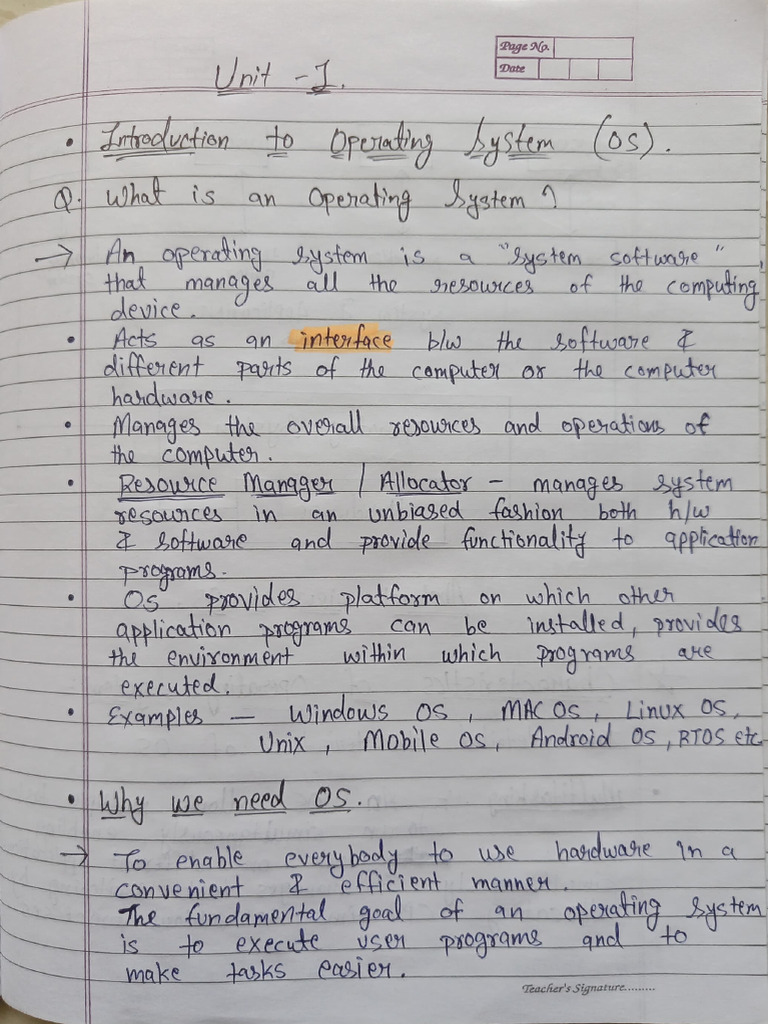 Page No.
Date
Unit - I.
• Introduction to Operating System (OS).
Q. What is an Operating System?
→ An operating system is a "system software"
that manages all the resources of the computing
device.
• Acts as an interface b/w the software &
different parts of the computer or the computer
hardware.
• Manages the overall resources and operations of
the computer.
• Resource Manager / Allocator - manages system
resources in an unbiased fashion both h/w
& software and provide functionality to application
programs.
• OS provides platform on which other
application programs can be installed, provides
the environment within which programs are
executed.
• Examples — Windows OS, MAC OS, Linux OS,
Unix, Mobile OS, Android OS, RTOS etc
• Why we need OS.
→ To enable everybody to use hardware in a
convenient & efficient manner.
The fundamental goal of an operating system
is to execute user programs and to
make tasks easier.
Teacher's Signature.........